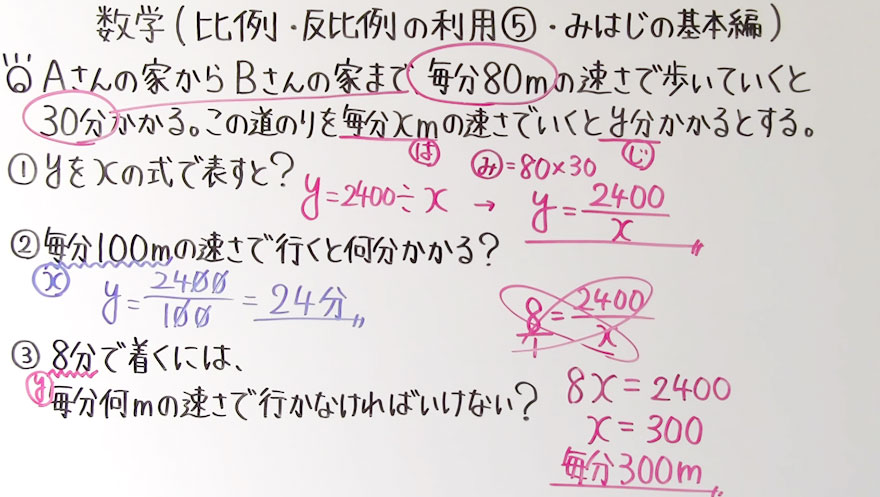 数学(比例・反比例の利用⑤・みはじの基本編)
Aさんの家からBさんの家まで、毎分80mの速さで歩いていくと
30分かかる。この道のりを毎分xmの速さでいくとy分かかるとする。
は み=80×30 じ
①yをxの式で表すと?
y=2400÷x → y=2400/x
②毎分100mの速さで行くと何分かかる?
x
y=2400/100=24分
③8分で着くには、
y
毎分何mの速さで行かなければいけない?
8/1=2400/x
8x=2400
x=300
毎分300m